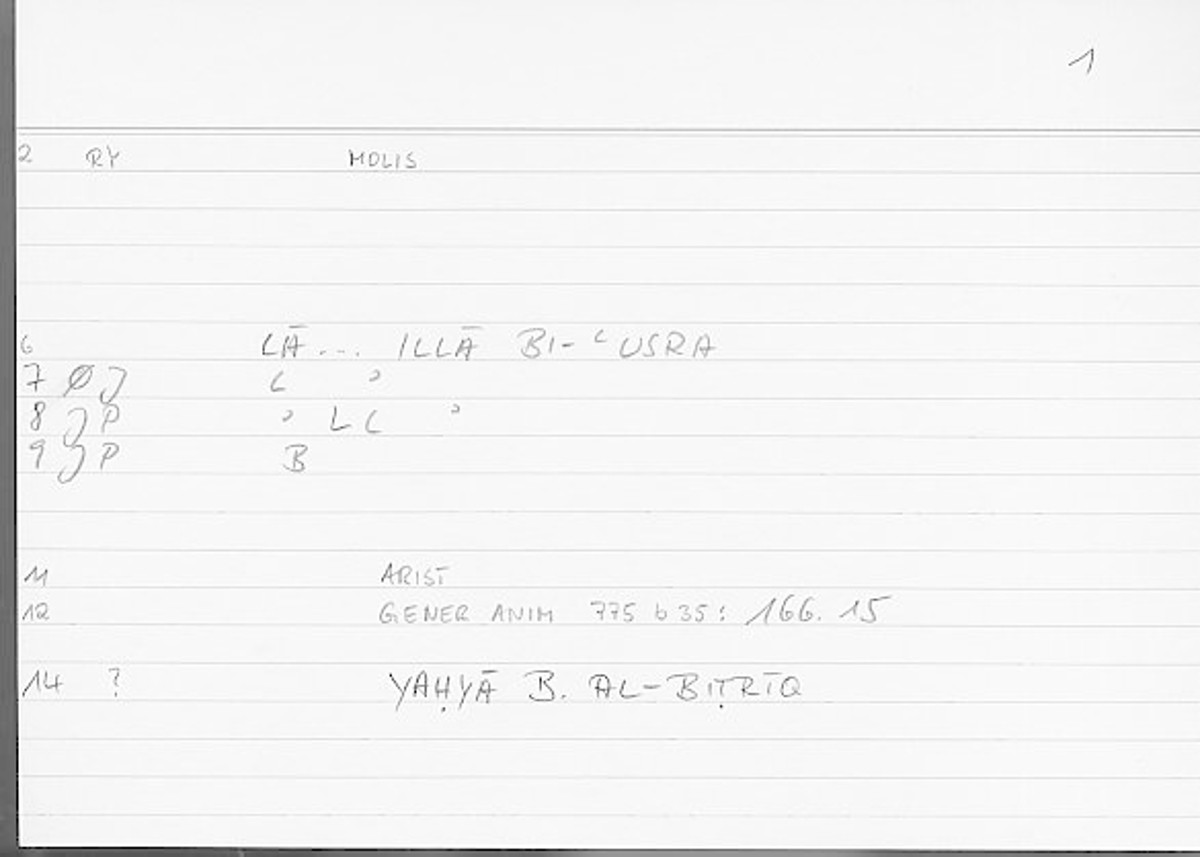 1
2 RY MOLIS
6 LĀ... ILLĀ BI-ʿUSRA
7 Ø J ʿ ʾ
8 J P ʾ L ʿ ʾ
9 J P B
11 ARIST
12 GENER ANIM 775 b 35: 166. 15
14 ? YAḤYĀ B. AL-BIṬRĪQ